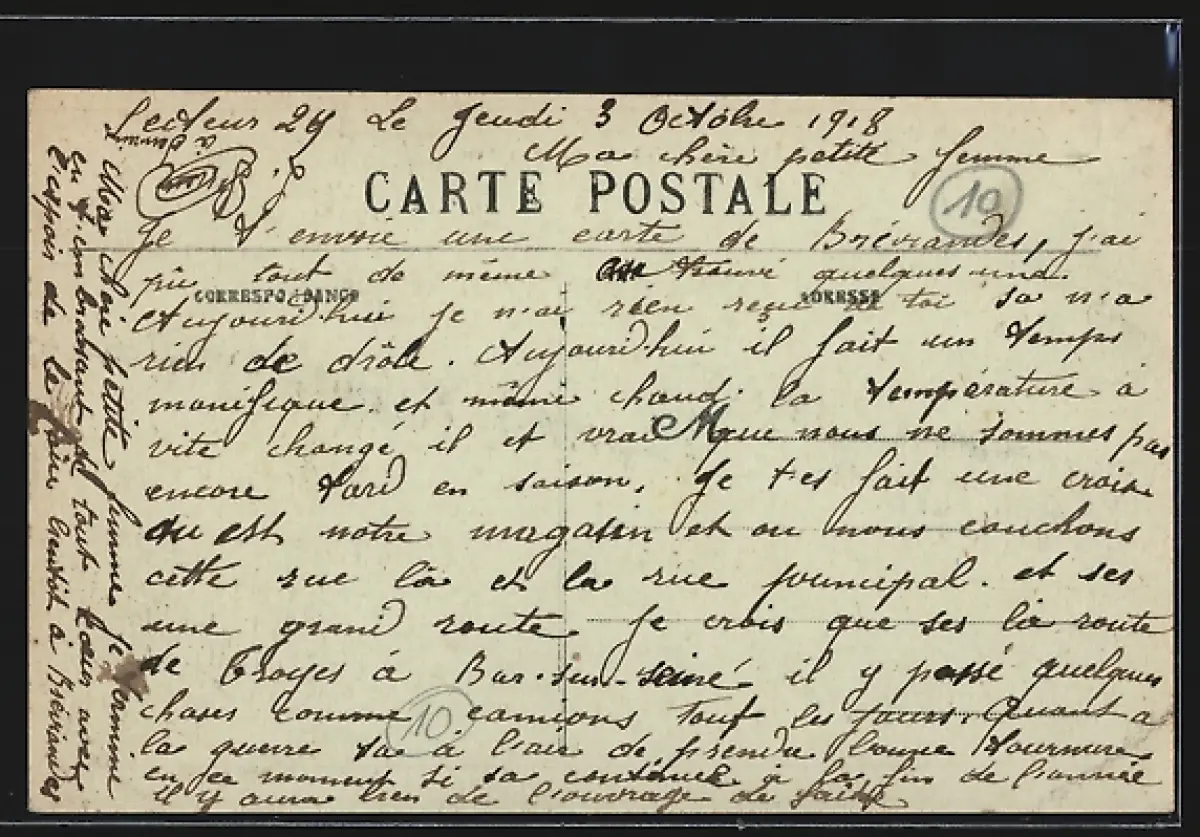 Secteur 24 Le Jeudi 3 Octobre 1918
Ma chère petite femme
CARTE POSTALE
10
Je t'envoie une carte de Bréviandes, j'ai
pu tout de même trouvé quelques une
CORRESPONDANCE
ADRESSE
Aujourd'hui je n'ai rien reçu de toi sa n'a
rien de drôle. Aujourd'hui il fait un temps
manifique et même chaud. la température à
vite changé il et vrai que nous ne sommes pas
encore tard en saison. Je t'es fait une croix
ou est notre magasin et ou nous couchons
cette rue là et la rue principal. et ses
une grand route. Je crois que ses la route
de Troyes à Bar-sur-seine il y passé quelques
choses comme camions tout les jours. Quant a
la guerre sa à l'air de prendre bonne tournure
en ce moment si sa continue à la fin de l'année
il y aura bien de l'ouvrage de fait
10
Ma chère petite femme Je termine
en t'embrassant de tout cœur avec
l'espoir de te lire bientôt à Bréviandes